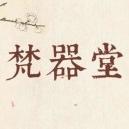 梵器堂